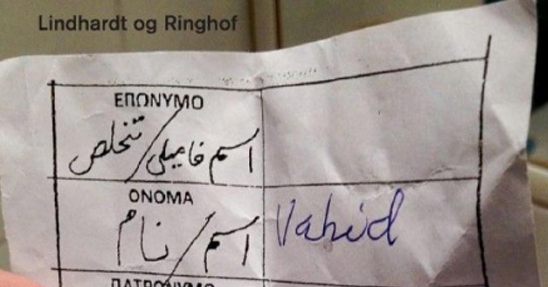 Lindhardt og Ringhof
ΕΠΩΝΥΜΟ
اسم فامیلی/تخلص
ΟΝΟΜΑ
اسم/نام
Vahid
ΠΑΤΡΩΝΥΜΟ